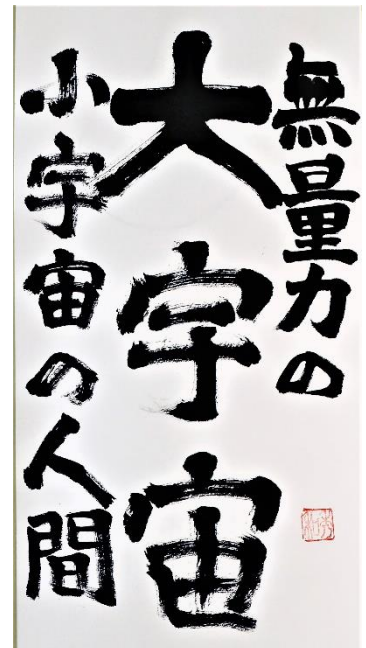 無量力の
大宇宙
小宇宙の人間